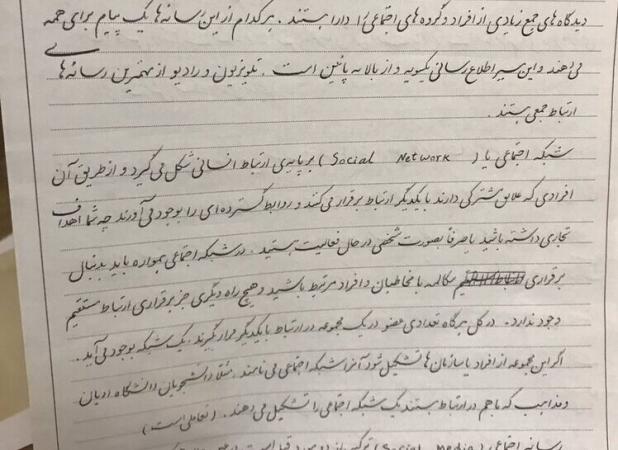 دیدگاه های جمع زیادی از افراد و گروه های اجتماعی را دارا هستند . هرکدام از این رسانه ها یک پیام برای همه
می دهند و این سیر اطلاع رسانی یکسویه و از بالا به پائین است . تلویزیون و رادیو از مهمترین رسانه ها
ارتباط جمعی هستند .
شبکه اجتماعی یا ( Social Network ) بر پایه ی ارتباط انسانی شکل می گیرد و از طریق آن
افرادی که علایق مشترکی دارند با یکدیگر ارتباط برقرار می کنند و روابط گسترده ای را بوجود می آورند چه شما اهداف
تجاری داشته باشید یا صرفاً بصورت شخصی در حال فعالیت هستید . در شبکه اجتماعی همواره باید بدنبال
برقراری مکالمه با مخاطبان و افراد مرتبط باشید و هیچ راه دیگری جز برقراری ارتباط مستقیم
وجود ندارد . در کل هرگاه تعدادی عضو در یک مجموعه در ارتباط با یکدیگر قرار گیرند . یک شبکه بوجود می آید .
اگر این مجموعه از افراد یا سازمان ها تشکیل شود آنرا شبکه اجتماعی می نامند . مثلاً دانشجویان دانشگاه ادیان
و مذاهب که با هم در ارتباط هستند یک شبکه اجتماعی را تشکیل می دهند . ( تعاملی است )
رسانه اجتماعی ( Social Media )